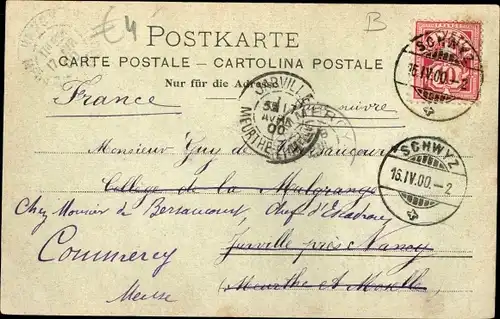 €4
B
POSTKARTE
CARTE POSTALE – CARTOLINA POSTALE
Nur für die Adresse
SCHWYZ
16.IV.00.
JARVILLE
17
AVRIL
00
MEURTHE-ET-M
France
suivre
SCHWYZ
16.IV.00.-2
Monsieur Guy de
Collège de la Malgrange
Chez Monsieur de Bersaucourt, chef d'Escadron
Jarville près Nancy
Commercy
Meurthe et Moselle
Meuse